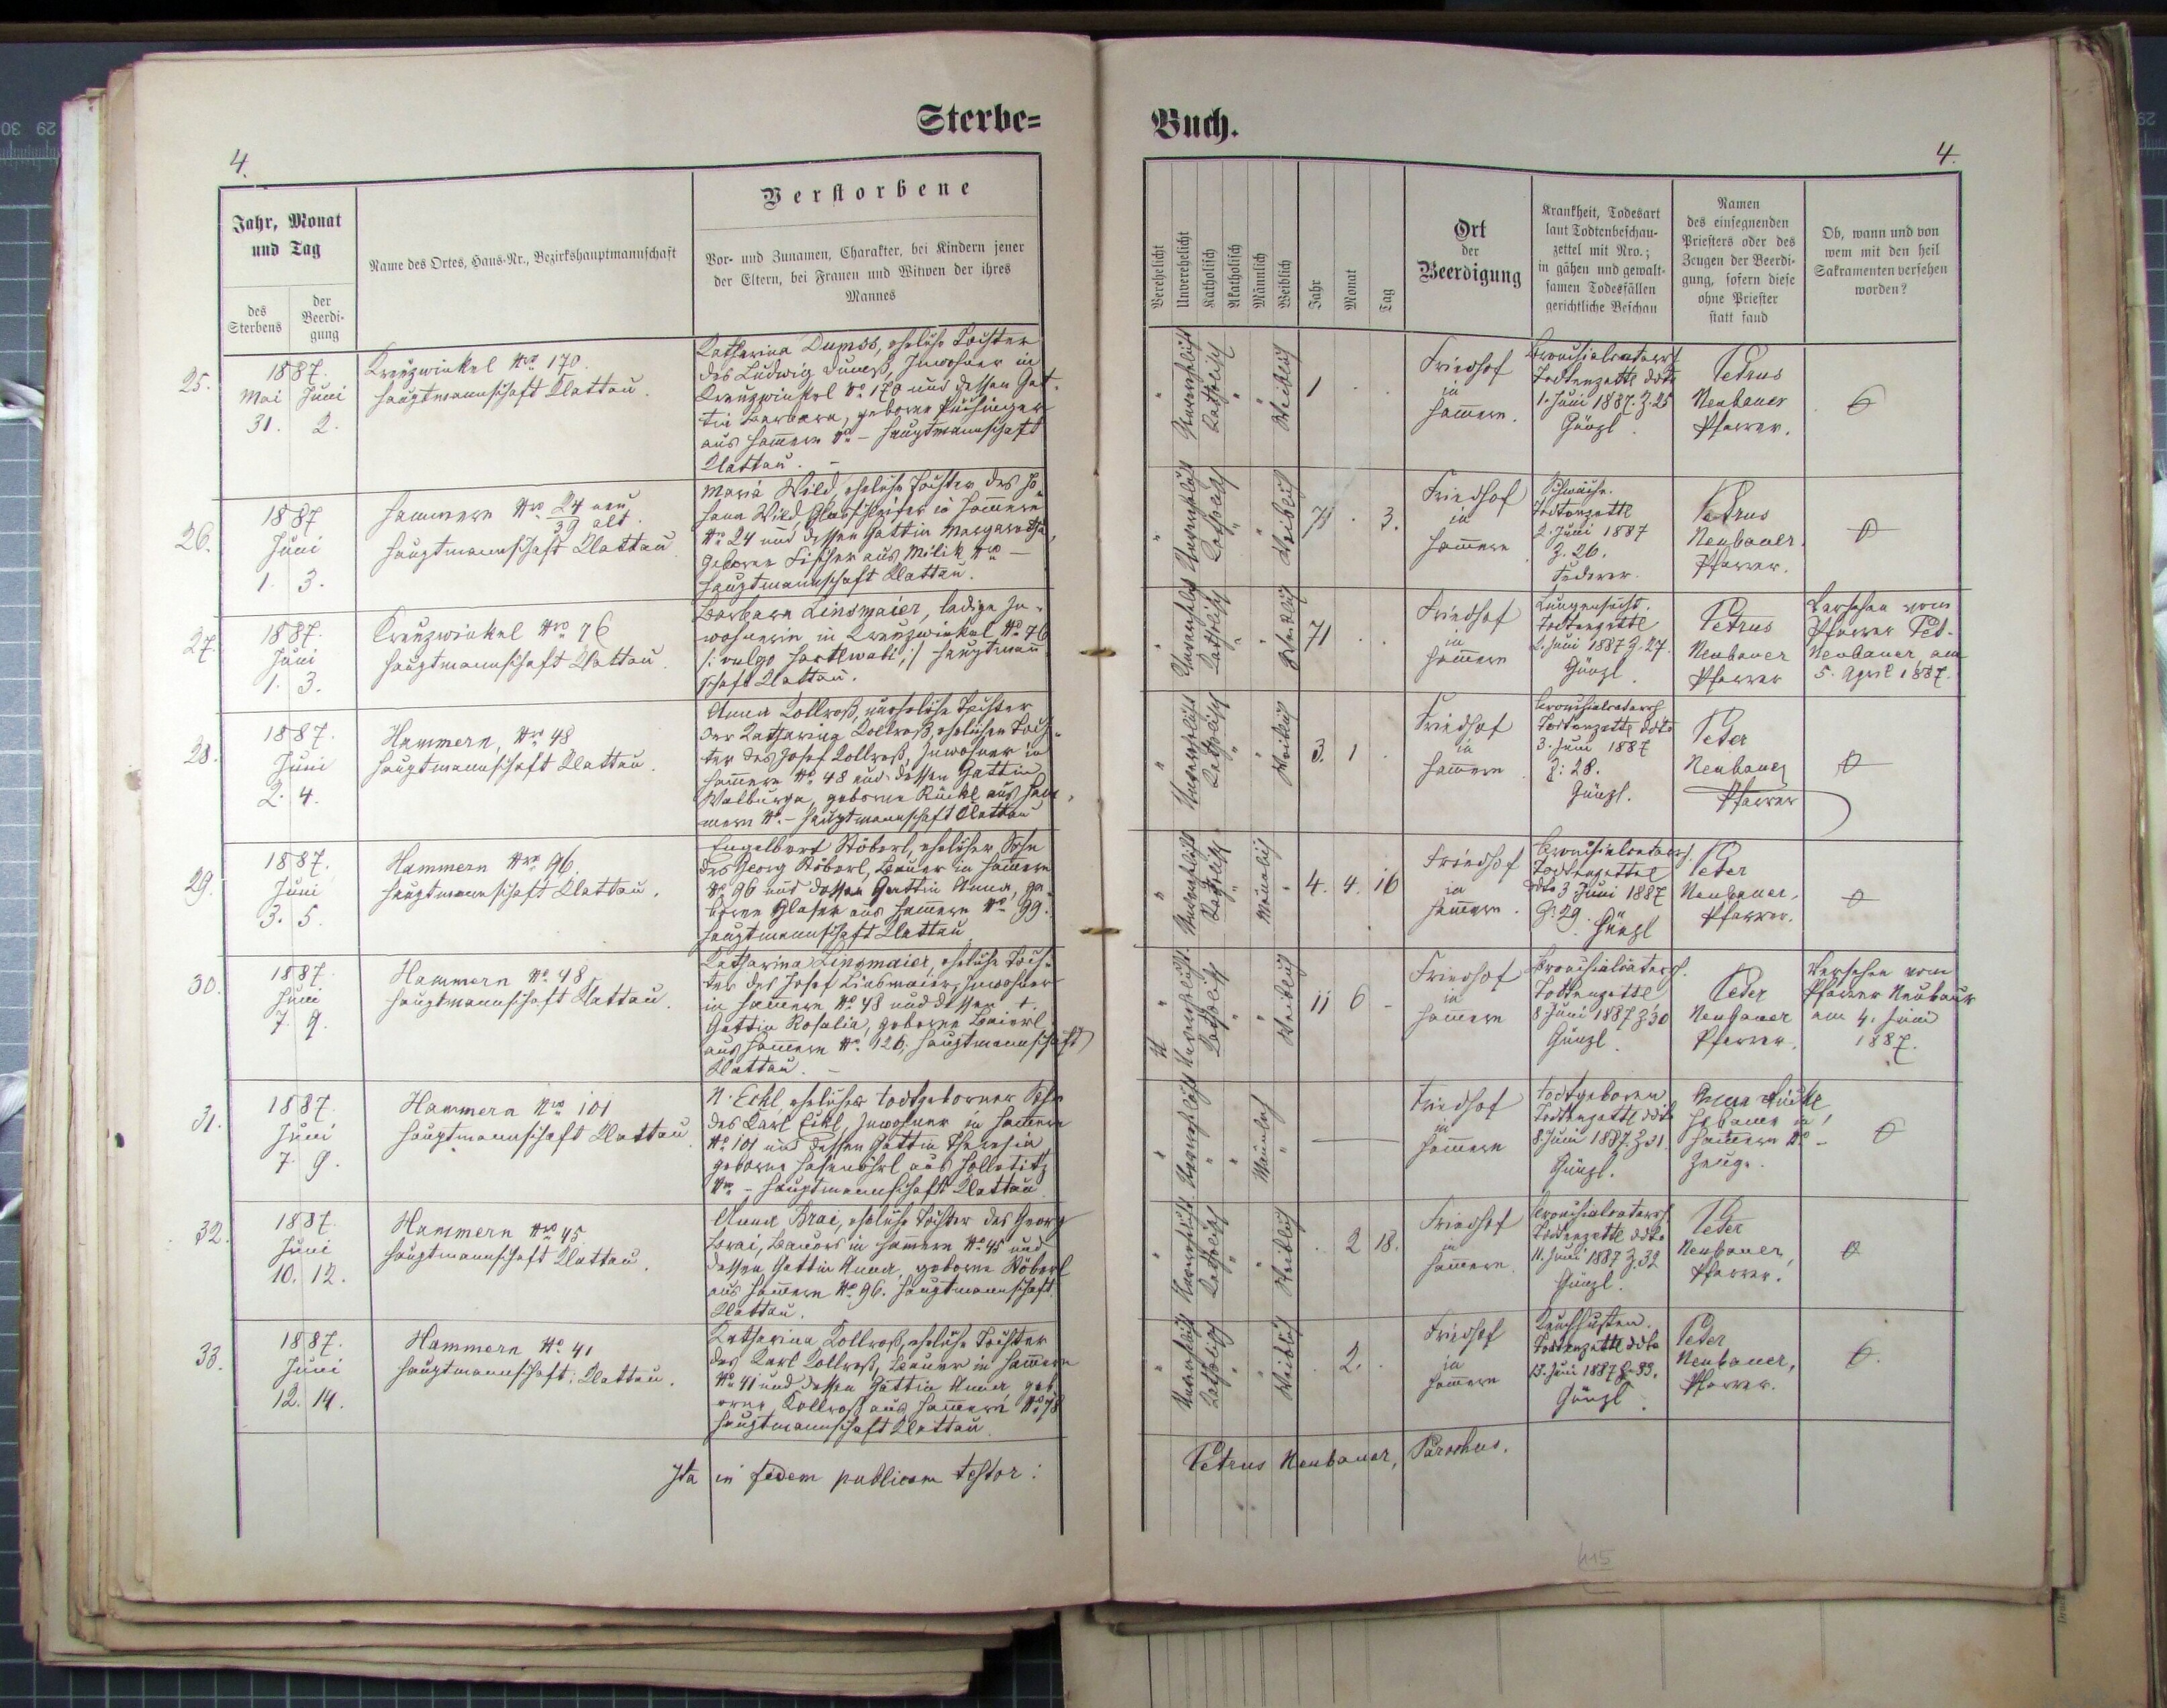 Sterbe=
Buch.
4.
4.
Jahr, Monat
und Tag
des
Sterbens
der
Beerdi-
gung
Name des Ortes, Haus-Nr., Bezirkshauptmannschaft
Verstorbene
Vor- und Zunamen, Charakter, bei Kindern jener
der Eltern, bei Frauen und Witwen der ihres
Mannes
Verehelicht
Unverehelicht
Katholisch
Akatholisch
Männlich
Weiblich
Jahr
Monat
Tag
Ort
der
Beerdigung
Krankheit, Todesart
laut Todtenbeschau-
zettel mit Nro.;
in gähen und gewalt-
samen Todesfällen
gerichtliche Beschau
Namen
des einsegnenden
Priesters oder des
Zeugen der Beerdi-
gung, sofern diese
ohne Priester
statt fand
Ob, wann und von
wem mit den heil
Sakramenten versehen
worden?
25.
1887.
Mai Juni
31. 2.
Kreuzwinkel Nro 170.
Hauptmannschaft Klattau.
Katharina Dumss, eheliche Tochter
des Ludwig Dumß, Inwohner in
Kreuzwinkel No 170 und dessen Gat-
tin Barbara, geborne
aus Hammern No – Hauptmannschaft
Klattau. –
Unverehelicht
Katholisch
Weiblich
1 . .
Friedhof
in
Hammern.
Bronchialcatarrh
Todtenzettl ddto
1. Juni 1887. Z. 25
Günzl.
Petrus
Neubauer
Pfarrer.
26.
1887
Juni
1. 3.
Hammern Nro 24 neu
39 alt.
Hauptmannschaft Klattau.
Maria Wild, eheliche Tochter des Jo-
hann Wild, Glasschleifer in Hammern
No 24 und dessen Gattin Margaretha,
geborne Fischer aus Milik Nro –
Hauptmannschaft Klattau.
Unverehelicht
Katholisch
Weiblich
3.
Friedhof
in
Hammern
Schwäche.
Todtenzettl
2. Juni 1887
Z. 26.
Petrus
Neubauer.
Pfarrer.
27.
1887.
Juni
1. 3.
Kreuzwinkel Nro 76
Hauptmannschaft Klattau.
Barbara Linsmaier, ledige In-
wohnerin in Kreuzwinkel No 76
/: vulgo :/ Hauptmann-
schaft Klattau.
Unverehelicht
Katholisch
Weiblich
71 . .
Friedhof
in
Hammern
Lungensucht.
Todtenzettl
2. Juni 1887 Z. 27.
Günzl.
Petrus
Neubauer
Pfarrer
Versehen vom
Pfarrer Pet.
Neubauer am
5. April 1887.
28.
1887.
Juni
2. 4.
Hammern, Nro 48
Hauptmannschaft Klattau.
Anna Kollroß, uneheliche Tochter
der Katharina Kollroß, ehelichen Toch-
ter des Josef Kollroß, Inwohner in
Hammern No 48 und dessen Gattin
Walburga, geborne Rückl aus Ham-
mern No – Hauptmannschaft Klattau
Unverehelicht
Katholisch
Weiblich
3. 1 .
Friedhof
in
Hammern
Bronchialcatarrh
Todtenzettl ddto
3. Juni 1887
Z: 28.
Günzl.
Peter
Neubauer
Pfarrer
29.
1887.
Juni
3. 5.
Hammern Nro 96
Hauptmannschaft Klattau.
Engelbert Stöberl, ehelicher Sohn
des Georg Stöberl, Bauer in Hammern
No 96 und dessen Gattin Anna, ge-
borne Glaser aus Hammern No 99.
Hauptmannschaft Klattau
Unverehelicht
Katholisch
Männlich
4. 4. 16
Friedhof
in
Hammern.
Bronchialcatarrh.
Todtenzettel
ddto 3 Juni 1887
Z: 29. Günzl
Peter
Neubauer,
Pfarrer.
30.
1887.
Juni
7. 9.
Hammern No 48
Hauptmannschaft Klattau.
Katharina Linsmaier, eheliche Toch-
ter des Josef Linsmaier, Inwohner
in Hammern No 48 und dessen †.
Gattin Rosalia, geborne Baierl
aus Hammern No 126, Hauptmannschaft
Klattau. –
Unverehelicht
Katholisch
Weiblich
11 6 -
Friedhof
in
Hammern
Bronchialcatarrh.
Todtenzettl
8 Juni 1887 Z. 30
Günzl.
Peter
Neubauer
Pfarrer.
Versehen vom
Pfarrer Neubauer
am 4. Juni
1887.
31.
1887
Juni
7. 9.
Hammern Nro 101
Hauptmannschaft Klattau.
N. Eckl, ehelicher todtgeborner Sohn
des Karl Eckl, Inwohner in Hammern
No 101 und dessen Gattin Theresia
geborne aus Holletitz
Nro – Hauptmannschaft Klattau
Unverehelicht
Männlich
Friedhof
in
Hammern
Todtgeboren
Todtenzettl ddto
8. Juni 1887. Z. 31.
Günzl.
Anna Rückl
Hebamme in
Hammern No –
Zeuge.
32.
1887.
Juni
10. 12.
Hammern Nro 45.
Hauptmannschaft Klattau.
Anna Brai, eheliche Tochter des Georg
Brai, Bauers in Hammern No 45 und
dessen Gattin Anna, geborne Stöberl
aus Hammern No 96. Hauptmannschaft
Klattau.
Unverehelicht
Katholisch
Weiblich
. 2 18.
Friedhof
in
Hammern.
Bronchialcatarrh
Todtenzettl ddto
11. Juni 1887 Z. 32
Günzl.
Peter
Neubauer,
Pfarrer.
33.
1887.
Juni
12. 14.
Hammern No 41
Hauptmannschaft: Klattau.
Katharina Kollroß, eheliche Tochter
des Karl Kollroß, Bauer in Hammern
No 41 und dessen Gattin Anna, geb-
orne Kollroß aus Hammern No 78
Hauptmannschaft Klattau.
Unverehelicht
Katholisch
Weiblich
. 2. .
Friedhof
in
Hammern
Keuchhusten.
Todtenzettl ddto
13. Juni 1887 Z. 33.
Günzl.
Peter
Neubauer,
Pfarrer.
Ita in fidem publicam testor:
Petrus Neubauer, Parochus.
115